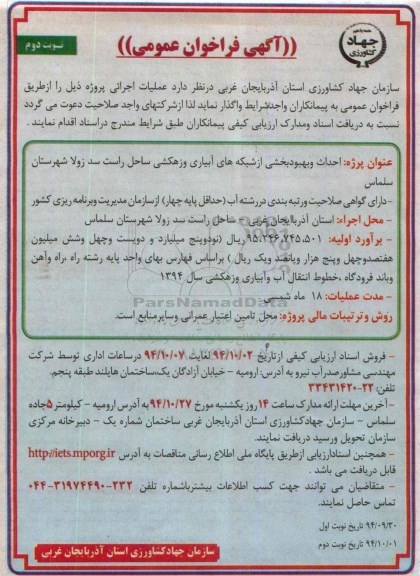 جهاد
کشاورزی
((آگهی فراخوان عمومی))
نوبت دوم
سازمان جهاد کشاورزی استان آذربایجان غربی درنظر دارد عملیات اجرائی پروژه ذیل را ازطریق
فراخوان عمومی به پیمانکاران واجدشرایط واگذار نماید لذا ازشرکتهای واجد صلاحیت دعوت می گردد
نسبت به دریافت اسناد ومدارک ارزیابی کیفی پیمانکاران طبق شرایط مندرج دراسناد اقدام نمایند .
عنوان پرژه: احداث وبهبودبخشی ازشبکه های آبیاری وزهکشی ساحل راست سد زولا شهرستان
سلماس
-دارای گواهی صلاحیت ورتبه بندی دررشته آب (حداقل پایه چهار) ازسازمان مدیریت وبرنامه ریزی کشور
- محل اجراء: استان آذربایجان غربی - ساحل راست سد زولا شهرستان سلماس
- برآورد اولیه: ۹۵،۲۴۶،۷۴۵،۵۰۱ریال (نودوپنج میلیارد و دویست وچهل وشش میلیون
هفتصدوچهل وپنج هزار وپانصد ویک ریال ) براساس فهارس بهای واحد پایه رشته راه ،راه وآهن
وباند فرودگاه ،خطوط انتقال آب وآبیاری وزهکشی سال ۱۳۹۴
- مدت عملیات: ۱۸ ماه شمسی
روش وترتیبات مالی پروژه: محل تامین اعتبار عمرانی وسایرمنابع است.
ParsNamadData
- فروش اسناد ارزیابی کیفی ازتاریخ ۹۴/۱۰/۰۲ لغایت ۹۴/۱۰/۰۷ درساعات اداری توسط شرکت
مهندسی مشاورصدرآب نیرو به آدرس: ارومیه - خیابان آزادگان یک،ساختمان هایلند طبقه پنجم.
تلفن: ۲۲-۳۳۴۳۱۴۲۰
- آخرین مهلت ارائه مدارک ساعت ۱۴ روز یکشنبه مورخ ۹۴/۱۰/۲۷ به آدرس ارومیه - کیلومتر ۵جاده
سلماس - سازمان جهادکشاورزی استان آذربایجان غربی ساختمان شماره یک - دبیرخانه مرکزی
سازمان تحویل ورسید دریافت نمایند.
- همچنین اسنادارزیابی ازطریق پایگاه ملی اطلاع رسانی مناقصات به آدرس http://iets.mporg.ir
قابل دریافت می باشد .
- متقاضیان می توانند جهت کسب اطلاعات بیشترباشماره تلفن ۲۳۲-۳۱۹۷۴۴۹۰-۰۴۴
تماس حاصل نمایند.
۹۴/۰۹/۳۰ تاریخ نوبت اول
۹۴/۱۰/۰۱ تاریخ نوبت دوم
سازمان جهادکشاورزی استان آذربایجان غربی